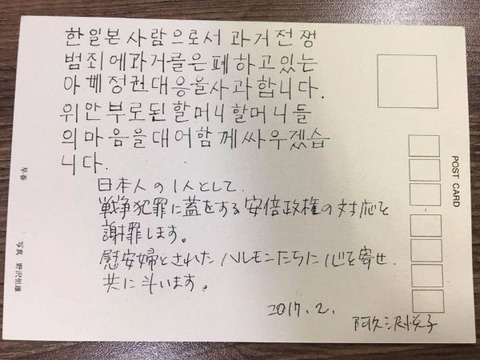 한일본사람으로서 과거전쟁
범죄에과거를은폐하고있는
아베정권대응을사과합니다.
위안부로된할머니할머니들
의마음을대어함께싸우겠습
니다.
日本人の1人として.
戦争犯罪に蓋をする安倍政権の対応を
謝罪します。
慰安婦とされたハルモニたちに心を寄せ.
共に斗います。
2017.2.
阿久沢悦子
POST CARD
早春
写真 野沢恒雄